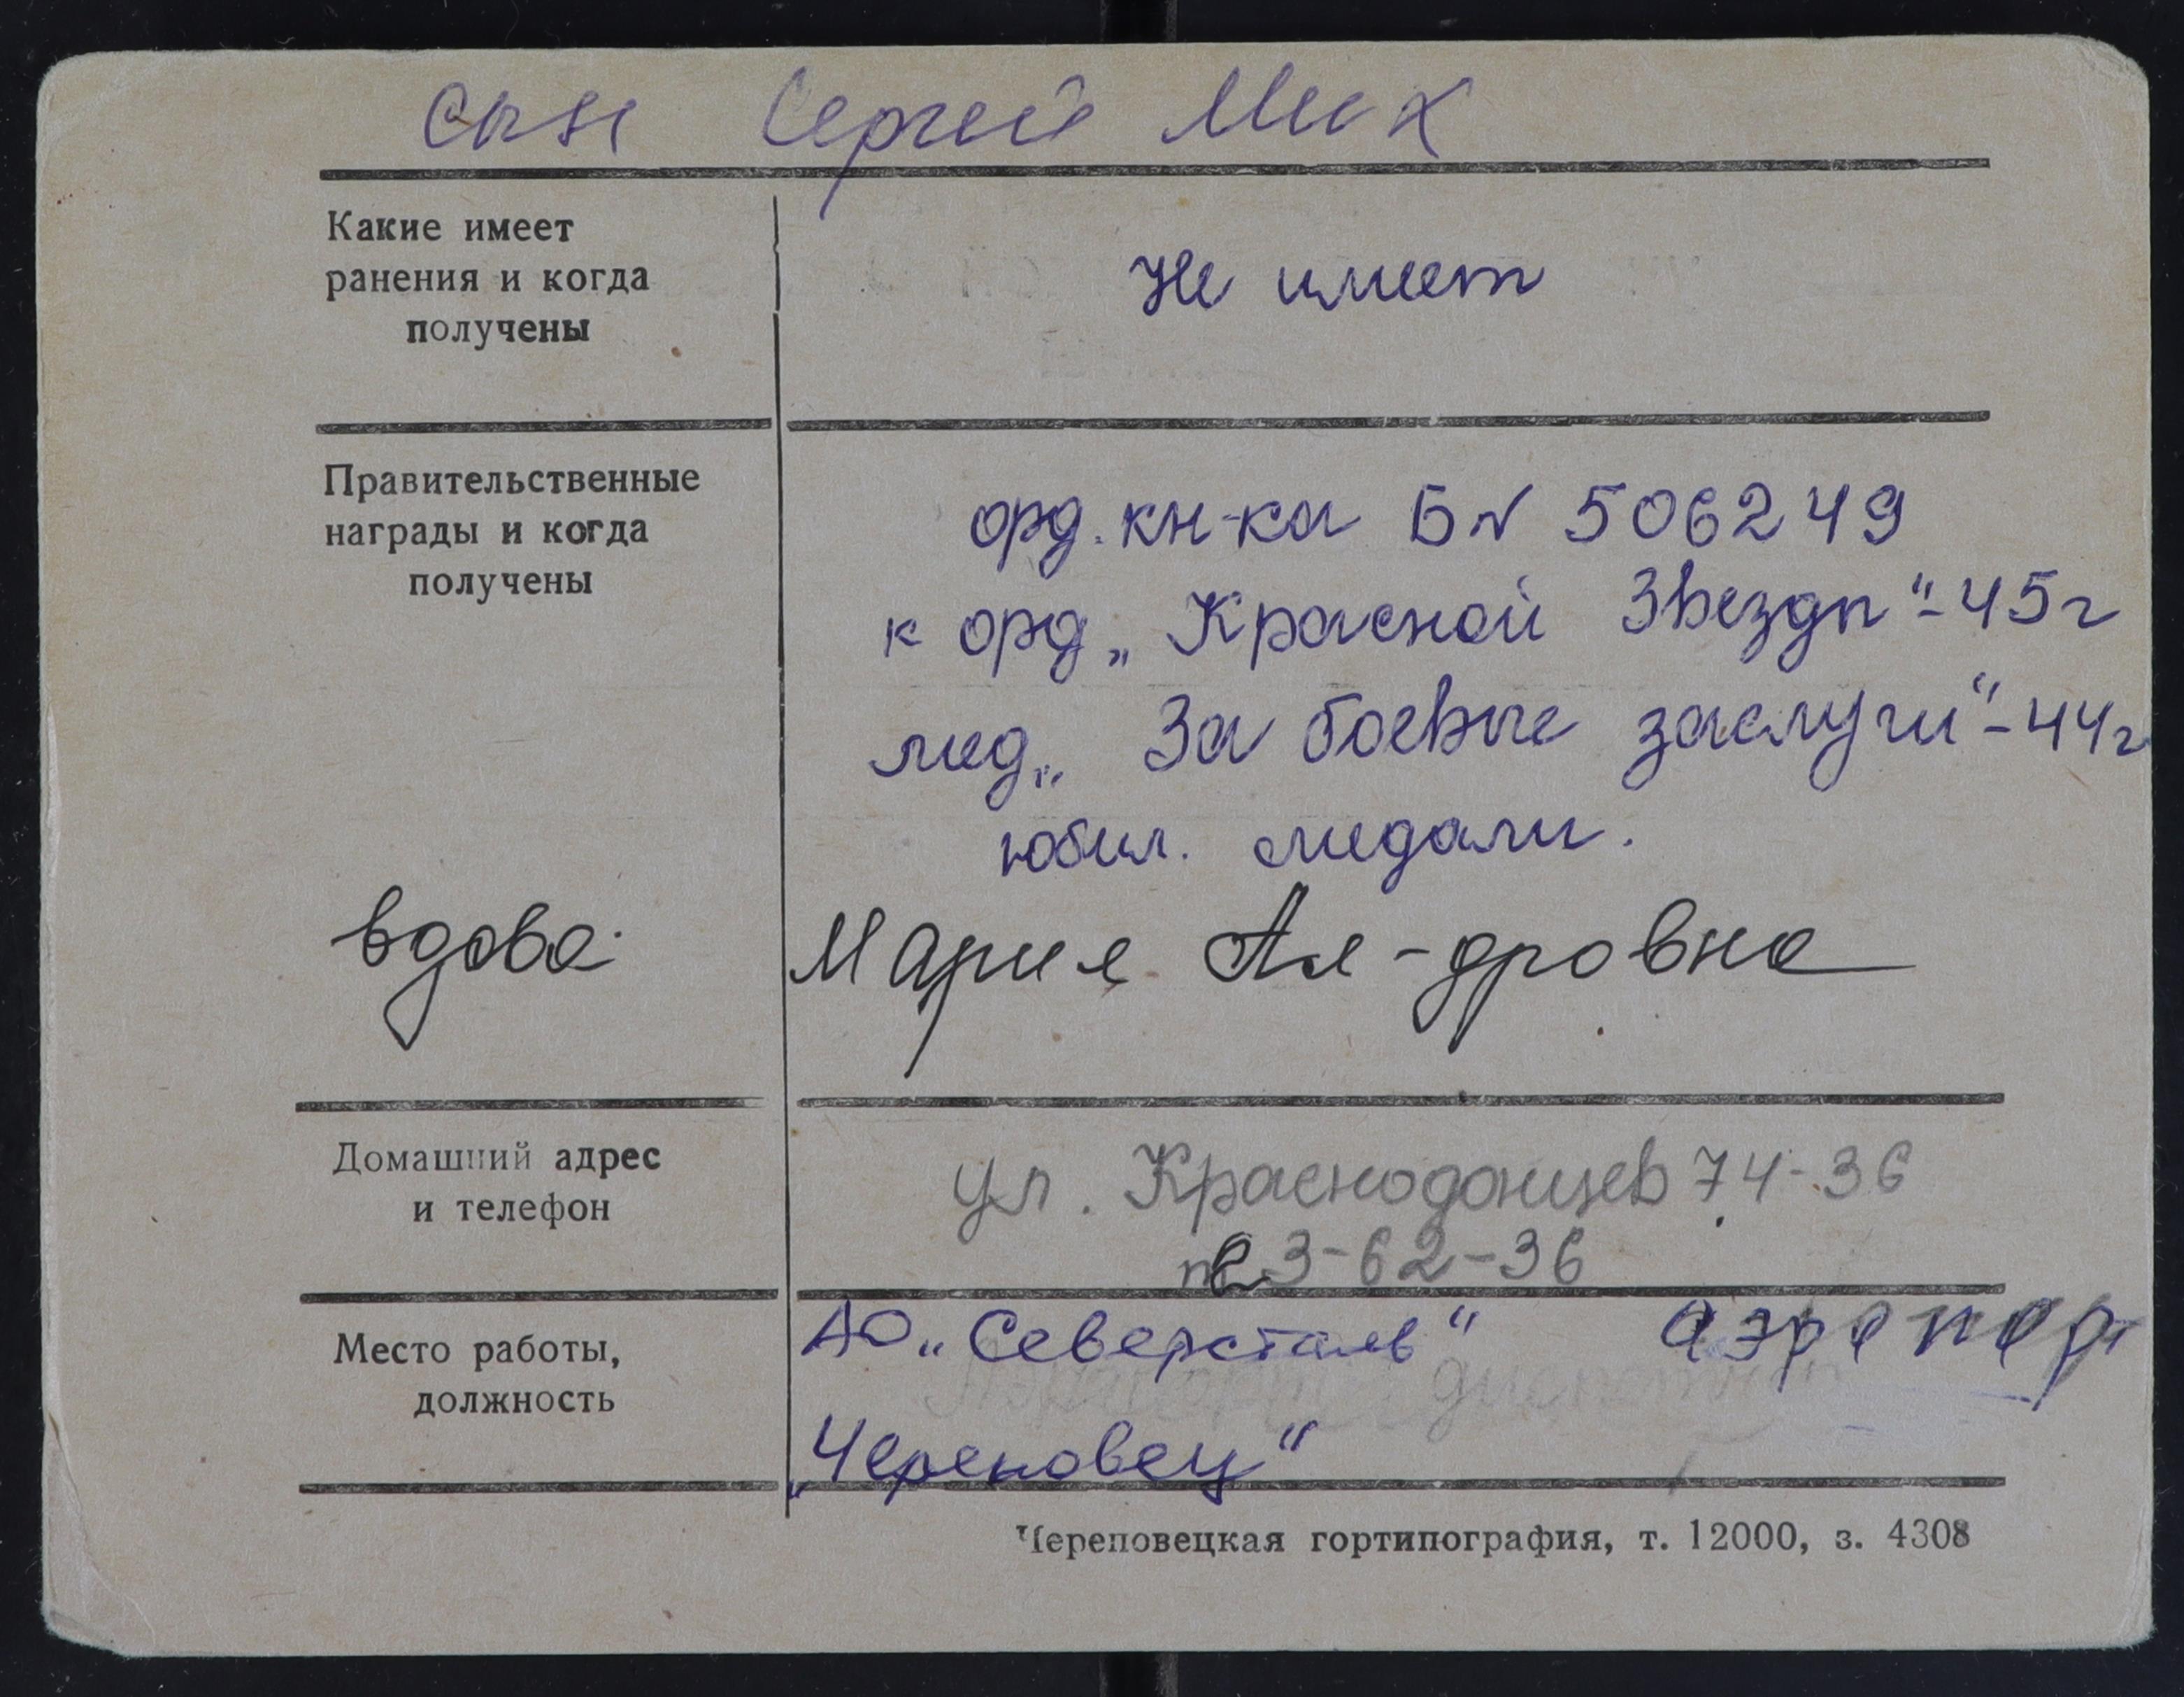 сын Сергей Мих
Какие имеет
ранения и когда
получены
Не имеет
Правительственные
награды и когда
получены
орд. кн-ка Б№ 506249
к орд „Красной Звезды“-45г
мед „За боевые заслуги“-44г
юбил. медали.
вдова Мария Ал-дровна
Домашний адрес
и телефон
ул. Краснодонцев 74-36
3-62-36
Место работы,
должность
АО „Северсталь“ аэропорт
„Череповец“
Череповецкая гортипография, т. 12000, з. 4308